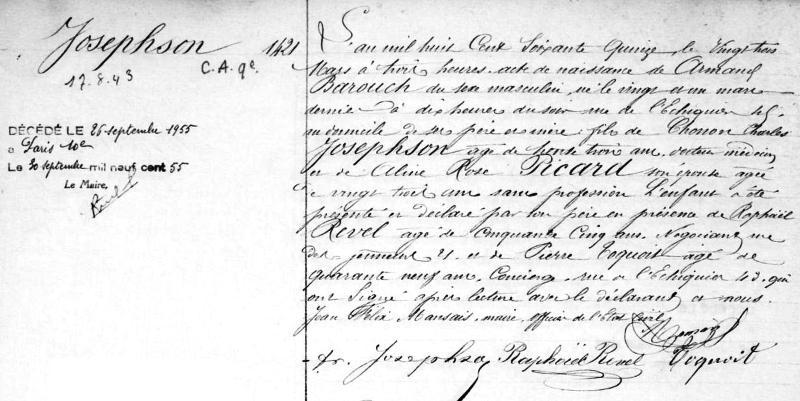 Josephson
17.8.43
1421
C. A. ge.
DÉCÉDÉ LE 26 septembre 1955
a Paris 10e
Le 30 septembre mil neuf cent 55
Le Maire,
L'an mil huit Cent Soixante Quinze, le Vingt trois
Mars à trois heures. acte de naissance de Armand
Barouch du sexe masculin, né le vingt et un mars
dernier à dix heures du soir rue de l'Echiquier 45.
au domicile de ses père et mère: fils de Chonon Charles
Josephson agé de trente trois ans, docteur médecin
et de Aline Rose Picard son épouse agée
de vingt trois ans sans profession. L'enfant a été
présenté et déclaré par son père en présence de Raphaël
Revel agé de Cinquante Cinq ans. Négociant rue
des jeuneurs 21. et de Pierre Voquoit agé de
quarante neuf ans, Concierge, rue de l'Echiquier 43. qui
ont signé après lecture avec le déclarant et nous.
Jean Félix Marsais, maire, officier de l'Etat Civil
Dr. Josephson Raphaël Revel Voquoit